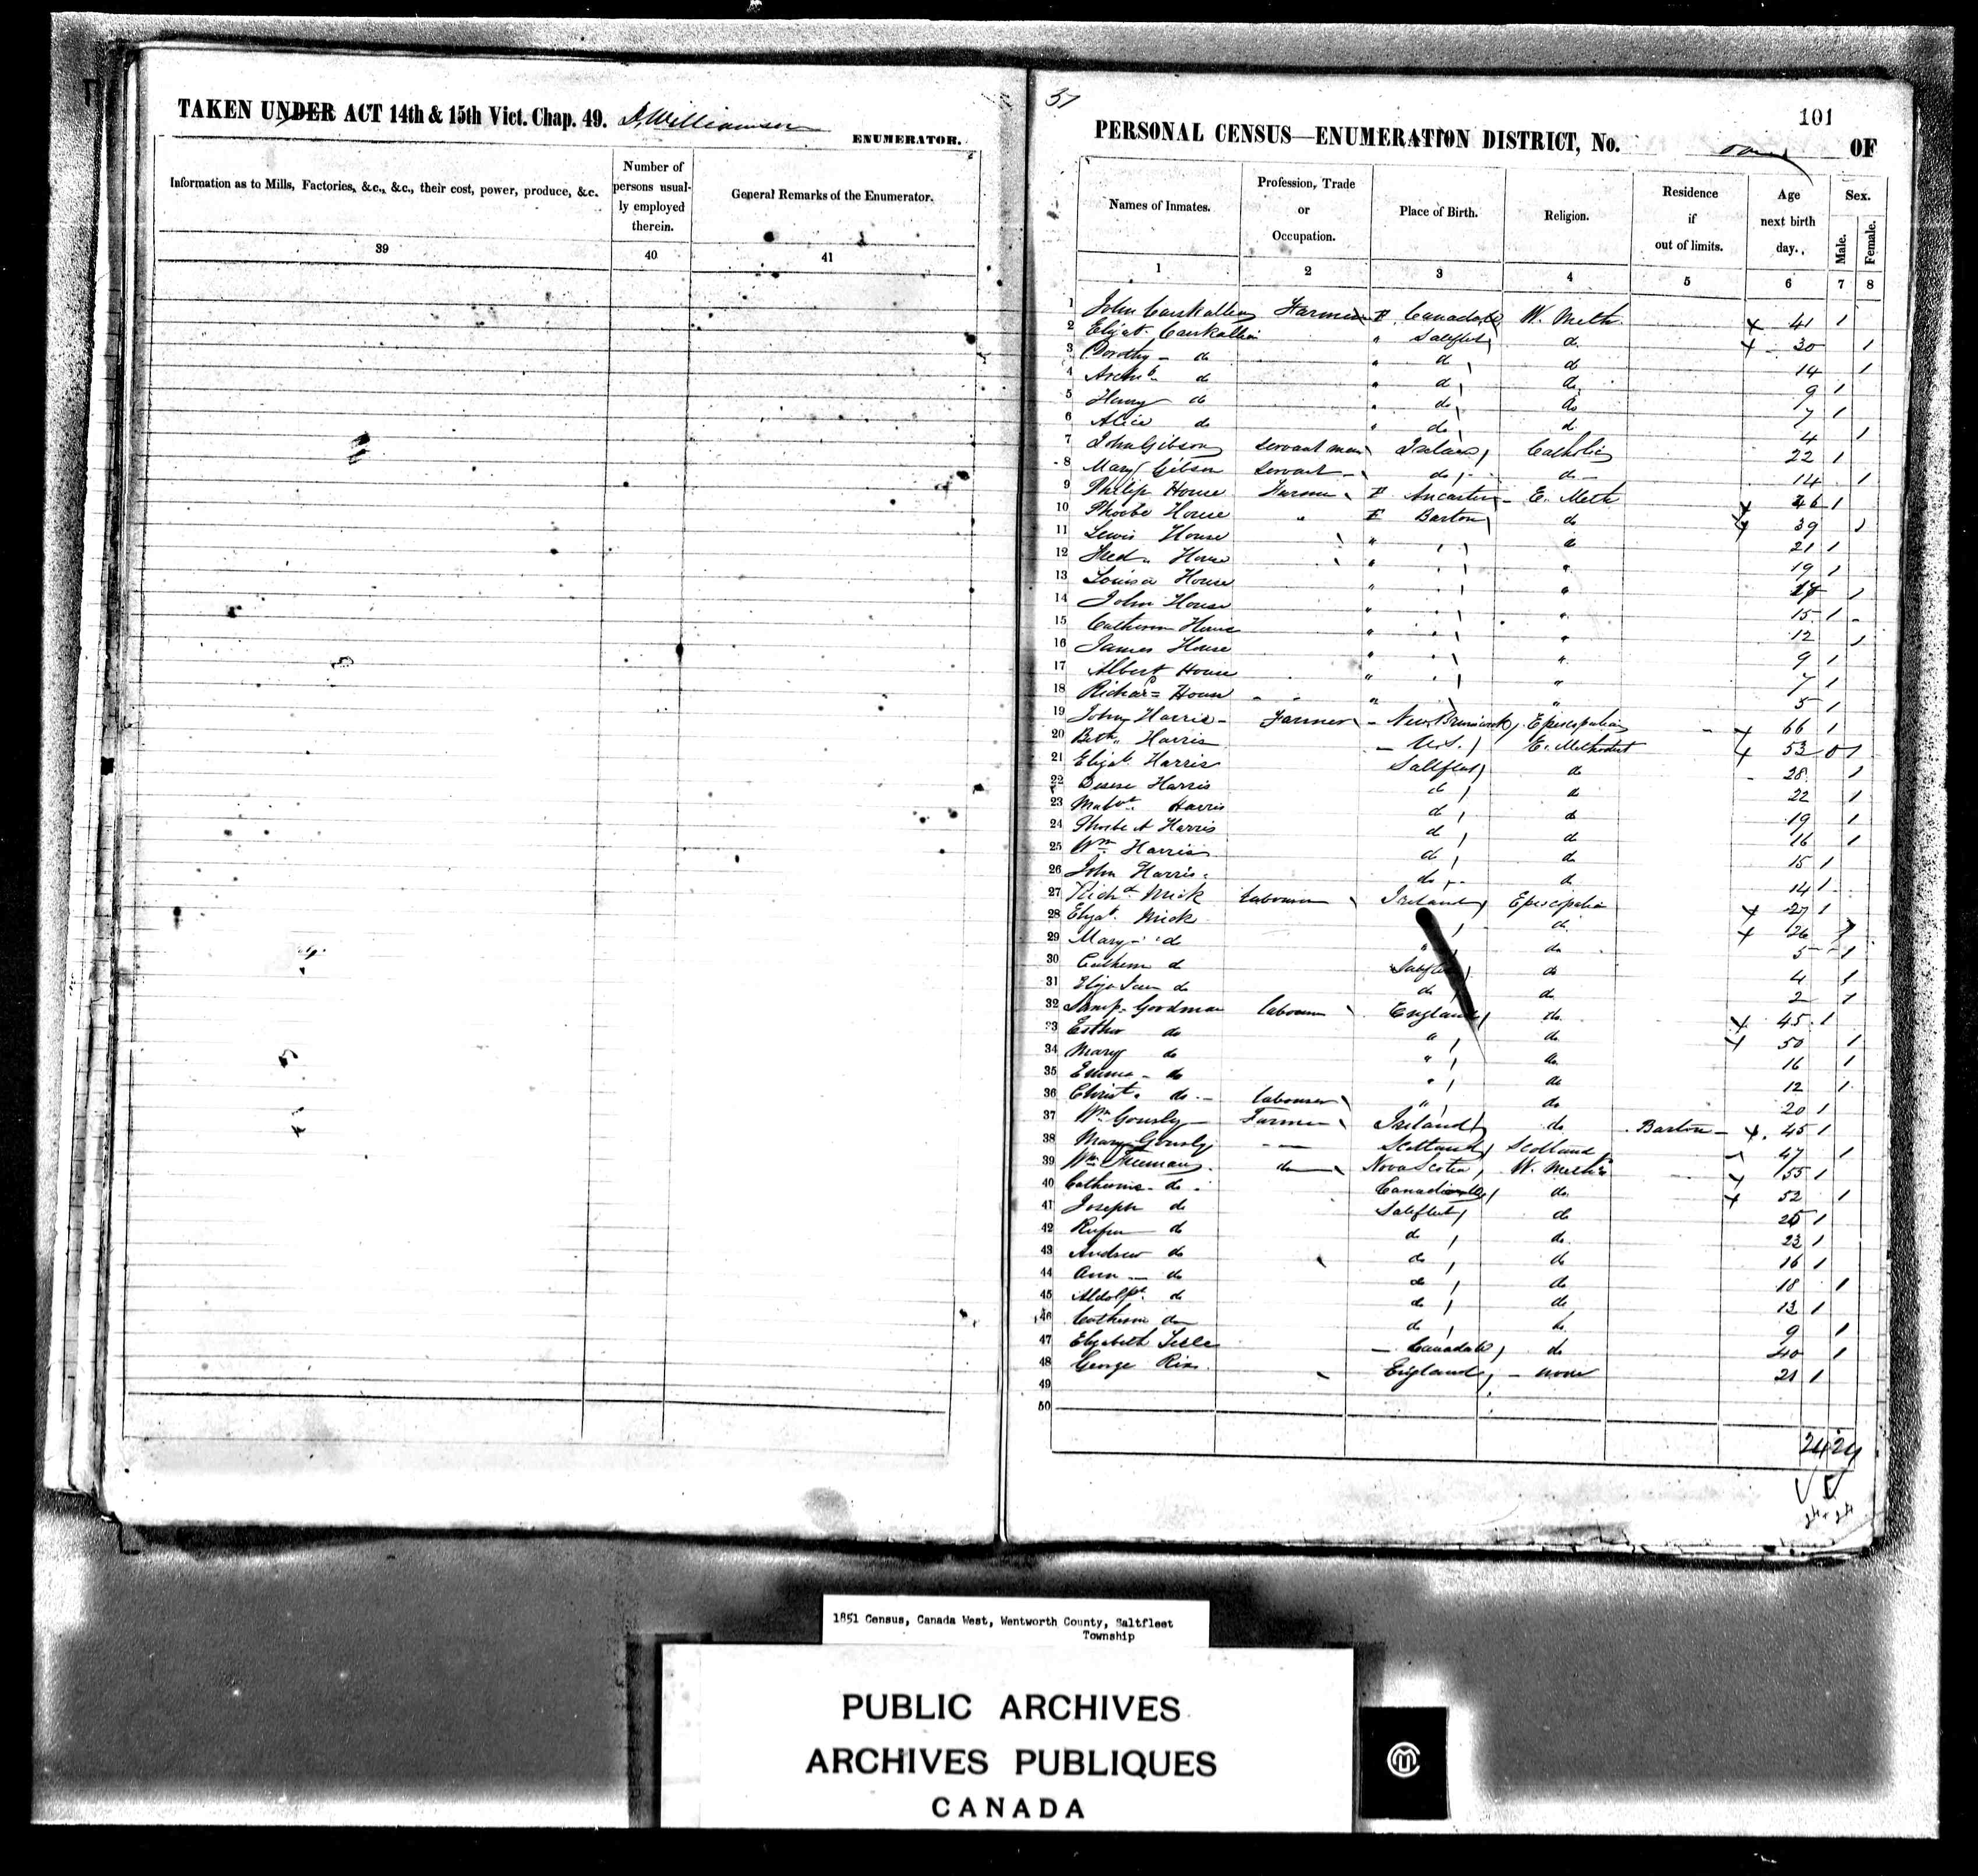 TAKEN UNDER ACT 14th & 15th Vict. Chap. 49. Williamson ENUMERATOR.
Information as to Mills, Factories, &c., &c., their cost, power, produce, &c.
Number of persons usually employed therein.
General Remarks of the Enumerator.
39 40 41
37
101
PERSONAL CENSUS—ENUMERATION DISTRICT, No. one OF
Names of Inmates.
Profession, Trade or Occupation.
Place of Birth.
Religion.
Residence if out of limits.
Age next birth day.
Sex.
Male. Female.
1 2 3 4 5 6 7 8
1 John Carskallen Farmer F Canada W. Meth. 41 1
2 Elizat. Carskallen " Saltfleet do 30 1
3 Dorothy - do " do do 14 1
4 Archb. do " do do 9 1
5 Henry do " do do 7 1
6 Alice do " do do 4 1
7 John Gibson Servant man Ireland Catholic 22 1
8 Mary Gibson Servant - do do - 14 1
9 Philip House Farmer F Ancaster - E. Meth 46 1
10 Phoebe House " F Barton do 39 1
11 Lewis House " " 21 1
12 Fred. House " " 19 1
13 Louisa House " " 1
14 John House " " 15 1
15 Catherine House " " 12 1
16 James House " " 9 1
17 Albert House " " 7 1
18 Richard House " " 5 1
19 John Harris - Farmer - New Brunswick Episcopalian 66 1
20 Beth. Harris - U.S. E. Methodist 53 0 1
21 Elizat. Harris Saltfleet do 28 1
22 Harris do do 22 1
23 Harris do do 19 1
24 Phoebe A Harris do do 16 1
25 Wm Harris do do 15 1
26 John Harris do do 14 1
27 Richd. Mick Labourer Ireland Episcopalian 27 1
28 Elizat. Mick do 26 1
29 Mary - do " do 5 1
30 Catherine do Saltfleet do 4 1
31 Eliza Jane do do do 2 1
32 Samp. Goodman labourer England do 45 1
33 Esther do " do 50 1
34 Mary do " do 16 1
35 Emma - do " do 12 1
36 Christ. do - labourer " do 20 1
37 Wm Gourly Farmer Ireland do Barton - 45 1
38 Mary Gourly Scotland Scotland 47 1
39 Wm Freeman do Nova Scotia W. Meth 55 1
40 Catherine - do Canada do 52 1
41 Joseph do Saltfleet do 25 1
42 Rufus do do do 23 1
43 Andrew do do do 16 1
44 Ann - do do do 18 1
45 Aldolph. do do do 13 1
46 Catherine do do do 9 1
47 Elizabeth - Canada do 40 1
48 George England - none 21 1
49
50
24 24
24 24
1851 Census, Canada West, Wentworth County, Saltfleet
Township
PUBLIC ARCHIVES
ARCHIVES PUBLIQUES
CANADA